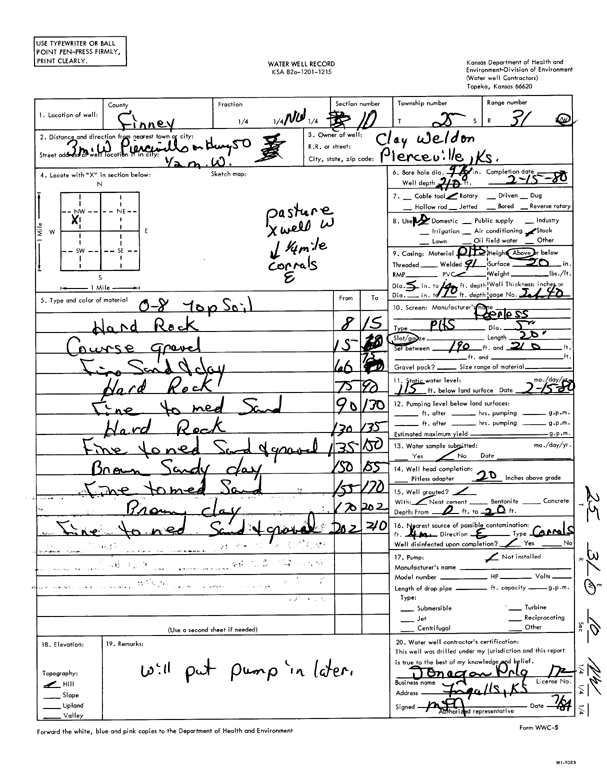 USE TYPEWRITER OR BALL
POINT PEN-PRESS FIRMLY,
PRINT CLEARLY.
WATER WELL RECORD
KSA 82a-1201-1215
Kansas Department of Health and
Environment-Division of Environment
(Water well Contractors)
Topeka, Kansas 66620
1. Location of well: County Finney Fraction 1/4 1/4 NW 1/4 Section number 10 Township number T 25 S Range number R 31 W
2. Distance and direction from nearest town or city: 3 mi. W Pierceville on Hwy 50
Street address of well location if in city: 1/2 m. W.
3. Owner of well: Clay Weldon
R.R. or street:
City, state, zip code: Pierceville, Ks.
4. Locate with "X" in section below: Sketch map:
N
NW NE
X
W E
SW SE
S
1 Mile
1 Mile
pasture
X well W
↓ 1/4 mile
corrals
E
5. Type and color of material From To
0-8 Top Soil
Hard Rock 8 15
Course gravel 15
Fine Sand & clay 60 75
Hard Rock 75 90
Fine to med Sand 90 130
Hard Rock 130 135
Fine to med Sand & gravel 135 150
Brown Sandy clay 150 155
Fine to med Sand 155 170
Brown clay 170 202
Fine to med Sand & gravel 202 210
(Use a second sheet if needed)
6. Bore hole dia. in. Completion date 2-15-80
Well depth 210 ft.
7. Cable tool ✓ Rotary Driven Dug
Hollow rod Jetted Bored Reverse rotary
8. Use: Domestic Public supply Industry
Irrigation Air conditioning ✓ Stock
Lawn Oil field water Other
9. Casing: Material Height: Above or below
Threaded Welded Surface 20 in.
RMP PVC Weight lbs./ft.
Dia. 5 in. to 190 ft. depth Wall Thickness: inches or
Dia. in. to ft. depth gage No.
10. Screen: Manufacturer's name Peerless
Type Dia. 5"
Slot/gauze Length 20'
Set between 190 ft. and 210 ft.
ft. and ft.
Gravel pack? Size range of material
11. Static water level: mo./day/yr.
115 ft. below land surface Date 2-15-80
12. Pumping level below land surfaces:
ft. after hrs. pumping g.p.m.
ft. after hrs. pumping g.p.m.
Estimated maximum yield g.p.m.
13. Water sample submitted: mo./day/yr.
Yes ✓ No Date
14. Well head completion:
Pitless adapter 20 Inches above grade
15. Well grouted? ✓
With: ✓ Neat cement Bentonite Concrete
Depth: From 0 ft. to 20 ft.
16. Nearest source of possible contamination:
ft. Direction E Type Corrals
Well disinfected upon completion? ✓ Yes No
17. Pump: ✓ Not installed
Manufacturer's name
Model number HP Volts
Length of drop pipe ft. capacity g.p.m.
Type:
Submersible Turbine
Jet Reciprocating
Centrifugal Other
18. Elevation:
Topography:
✓ Hill
Slope
Upland
Valley
19. Remarks:
will put pump in later.
20. Water well contractor's certification:
This well was drilled under my jurisdiction and this report
is true to the best of my knowledge and belief.
Donagan Drlg 172
Business name License No.
Address Ingalls, KS
Signed Date
Authorized representative
Forward the white, blue and pink copies to the Department of Health and Environment
Form WWC-5
T 25
R 31 E W
Sec 10
1/4 1/4 NW 1/4